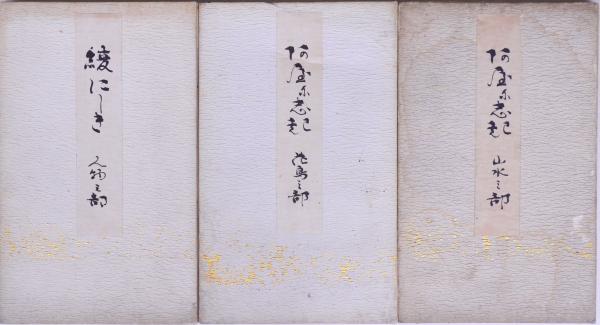 綾にしき
人物之部
阿屋尓志起
花鳥之部
阿屋尓志起
山水之部